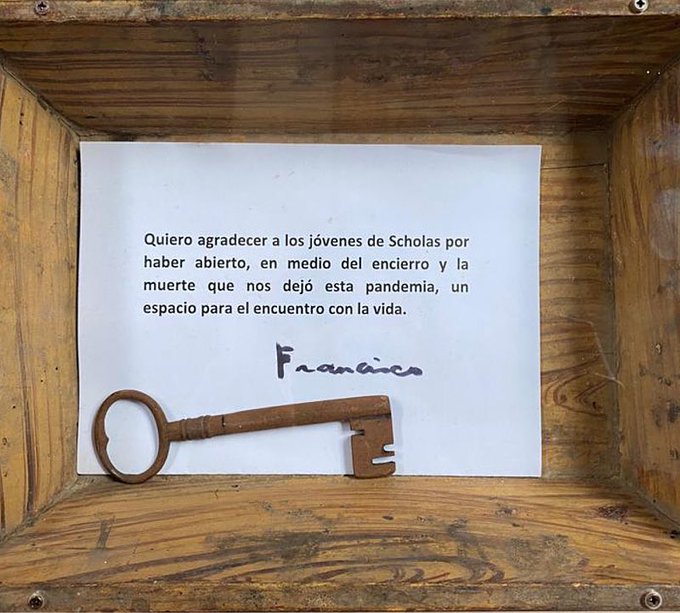 Quiero agradecer a los jóvenes de Scholas por
haber abierto, en medio del encierro y la
muerte que nos dejó esta pandemia, un
espacio para el encuentro con la vida.
Francisco